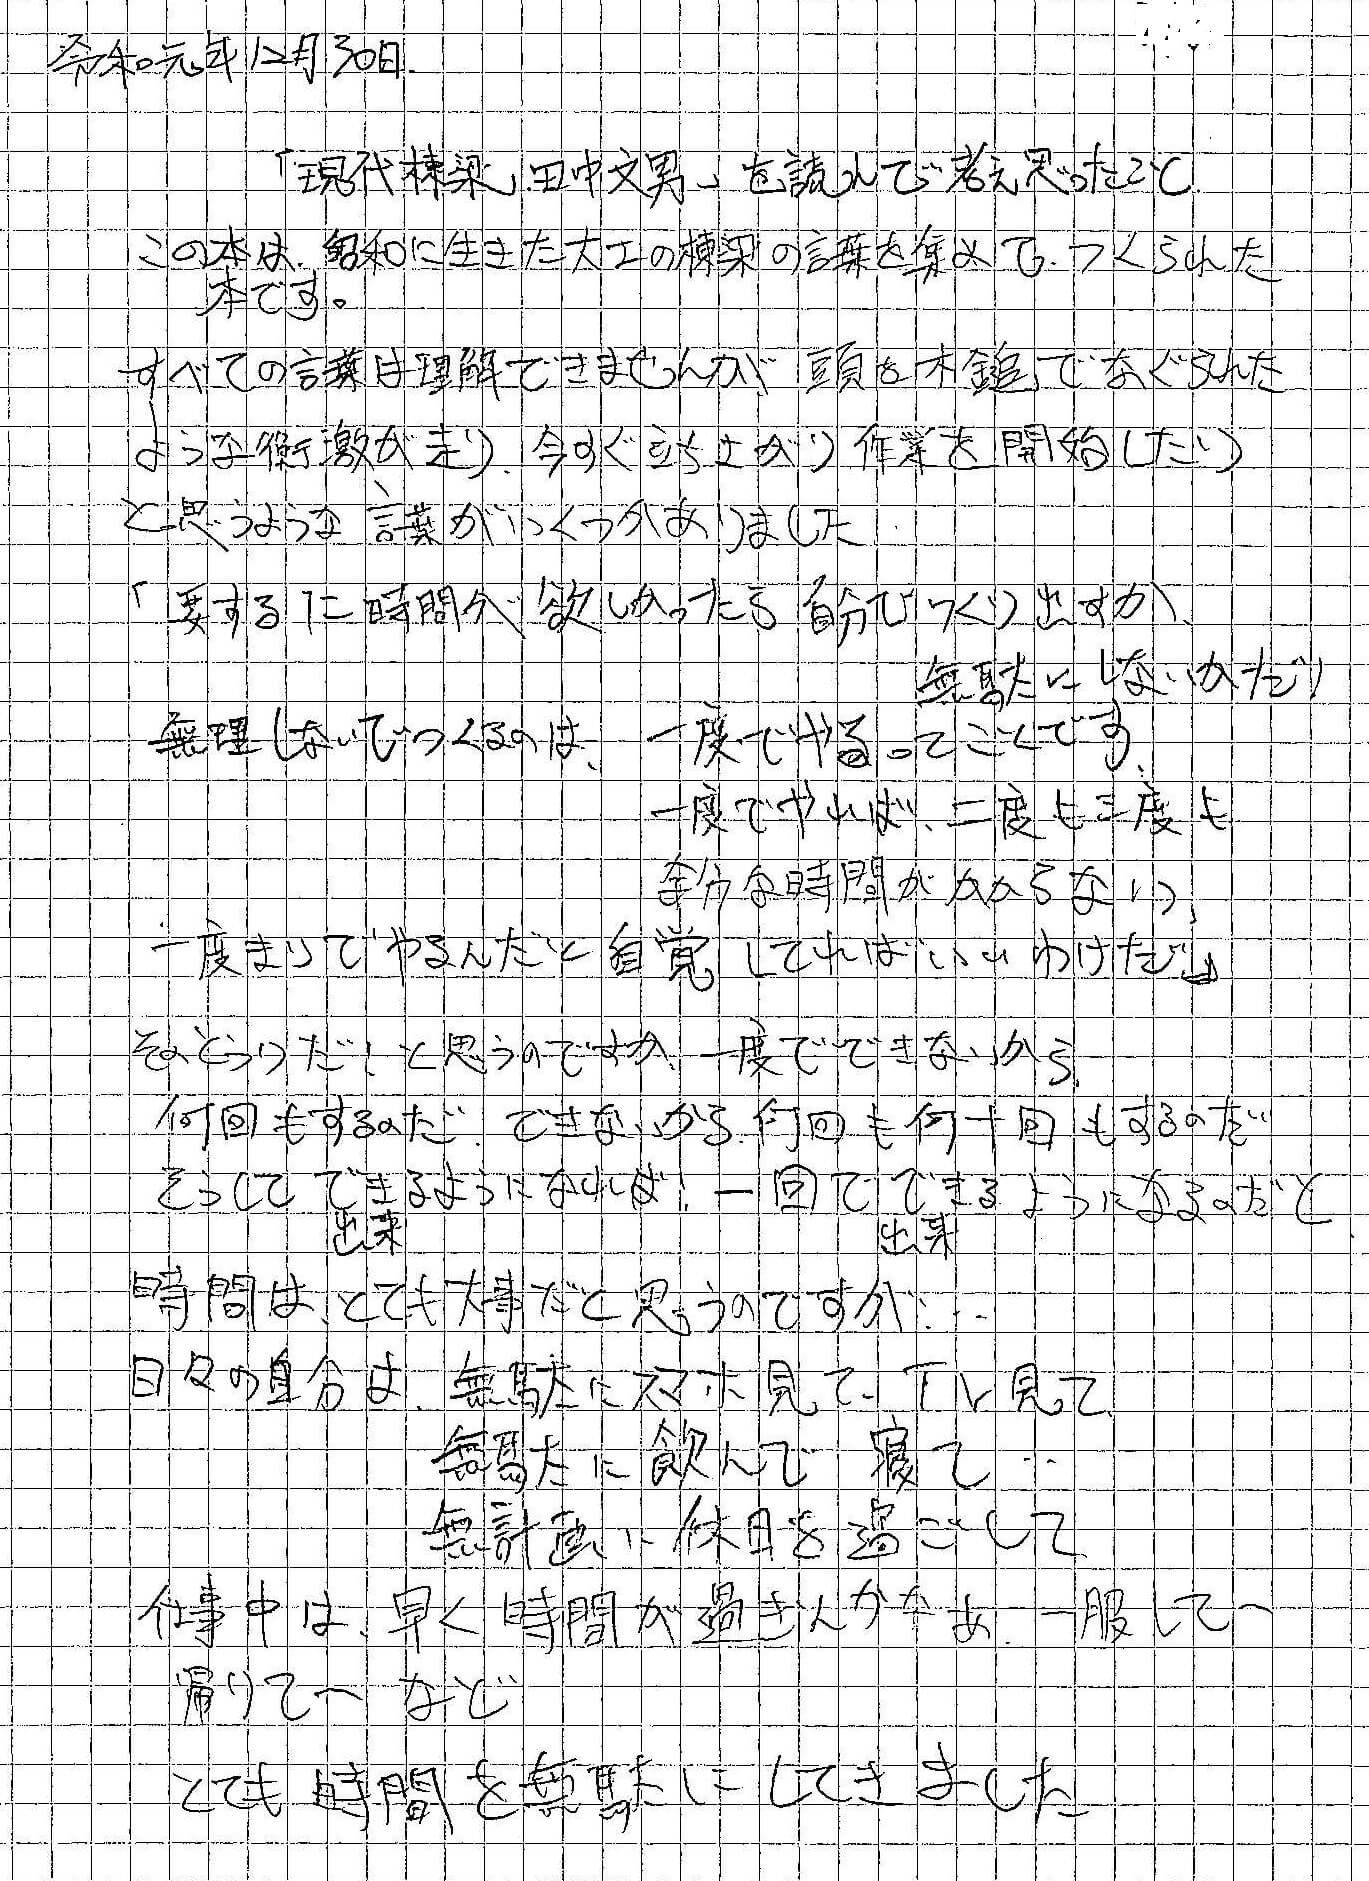 令和元年12月30日.
「現代棟梁 田中文男」を読んで考え思ったこと
この本は、昭和に生きた大工の棟梁の言葉を集めて、つくられた
本です。
すべての言葉は理解できませんが 頭を木鎚でなぐられた
ような衝激が走り、今すぐ立ち上がり 作業を開始したい
と思うような言葉がいくつかありました
「要するに時間が欲しかったら自分でつくり出すか、
無駄にしないかだ!
無理しないでつくるのは、一度でやるってことです、
一度でやれば、二度も三度も
余分な時間がかからない、
一度きりでやるんだと自覚してればいいわけだ」
そのとうりだ!と思うのですが、一度でできないから、
何回もするのだ、できないから何回も何十回もするのだ
そうしてできるようになれば!一回でできるようになるのだと
出来 出来
時間は、とても大事だと思うのですが…
日々の自分は、無駄にスマホ見て、TV見て、
無駄に飲んで 寝て…
無計画に休日を過ごして
仕事中は、早く時間が過ぎんかなぁ、一服して〜
帰りて〜 など
とても時間を無駄にしてきました